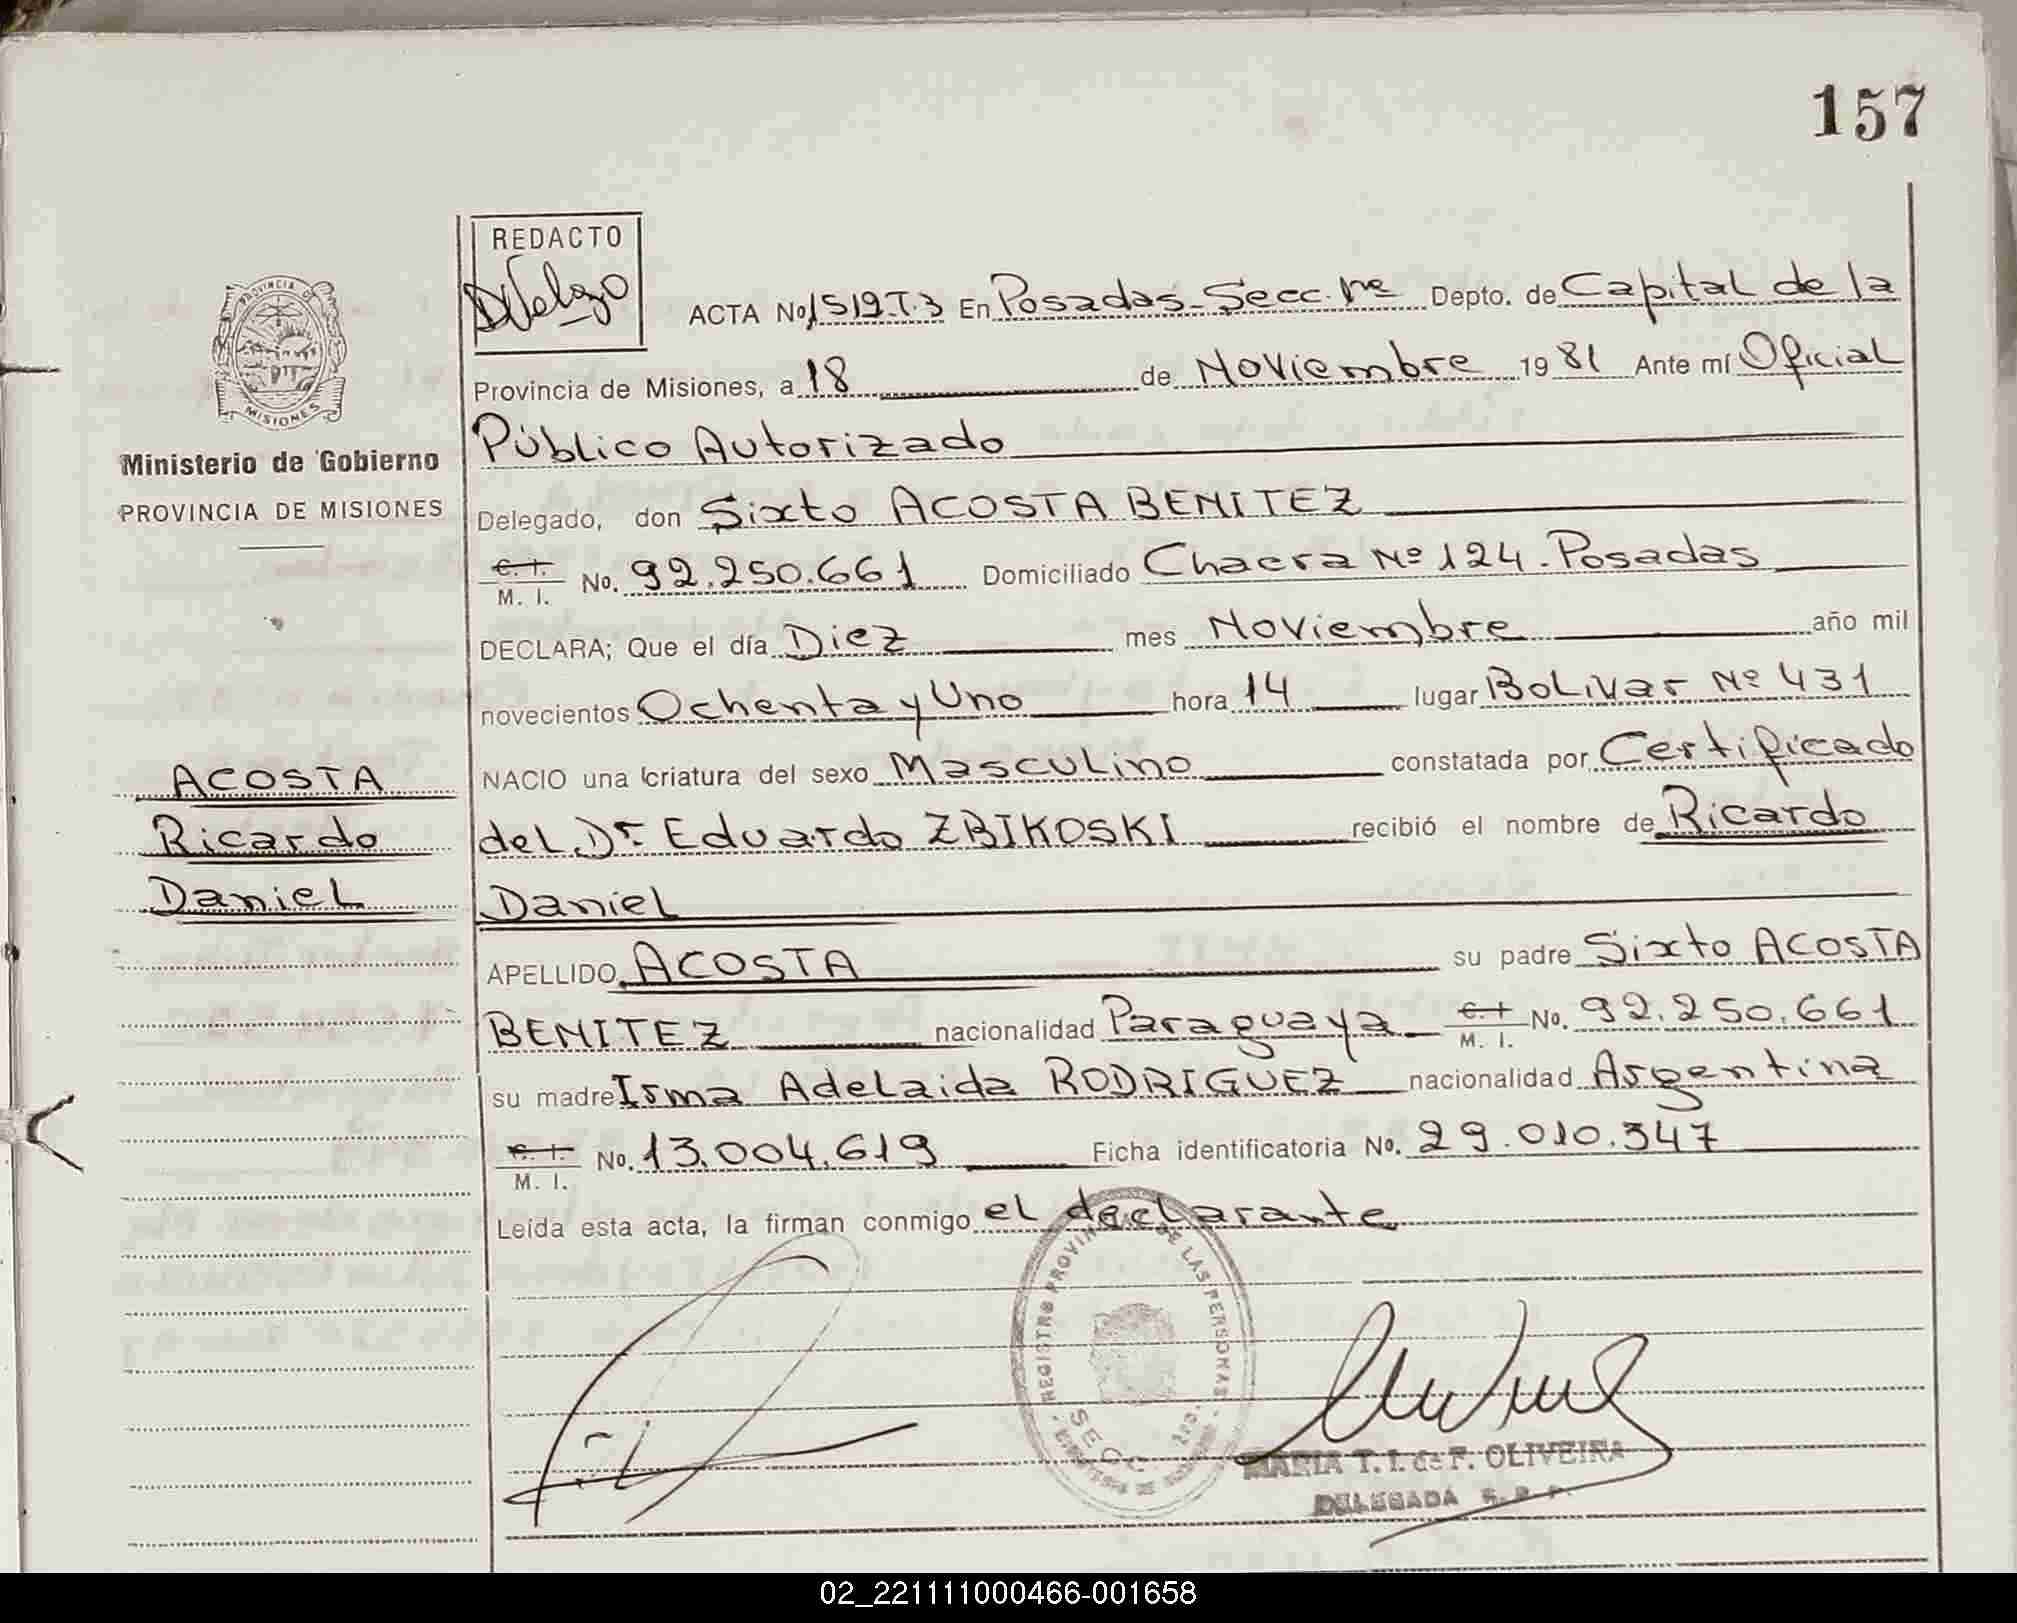 157
REDACTO
PROVINCIA DE
MISIONES
Ministerio de Gobierno
PROVINCIA DE MISIONES
ACOSTA
Ricardo
Daniel
ACTA No. 1519.T.3 En Posadas-Secc. 1ra Depto. de Capital de la
Provincia de Misiones, a 18 de Noviembre 1981 Ante mí Oficial
Público Autorizado
Delegado, don Sixto ACOSTA BENITEZ
C. I.
M. I. No. 92.250.661 Domiciliado Chacra Nº 124. Posadas
DECLARA; Que el día Diez mes Noviembre año mil
novecientos Ochenta y Uno hora 14 lugar Bolivar Nº 431
NACIO una criatura del sexo Masculino constatada por Certificado
del Dr. Eduardo ZBIKOSKI recibió el nombre de Ricardo
Daniel
APELLIDO ACOSTA su padre Sixto ACOSTA
BENITEZ nacionalidad Paraguaya C. I. M. I. No. 92.250.661
su madre Irma Adelaida RODRIGUEZ nacionalidad Argentina
C. I.
M. I. No. 13.004.619 Ficha identificatoria No. 29.010.347
Leída esta acta, la firman conmigo el declarante
REGISTRO PROVINCIAL DE LAS PERSONAS
SECC.
MARIA T. I. de F. OLIVEIRA
DELEGADA R. P. P.
02_221111000466-001658